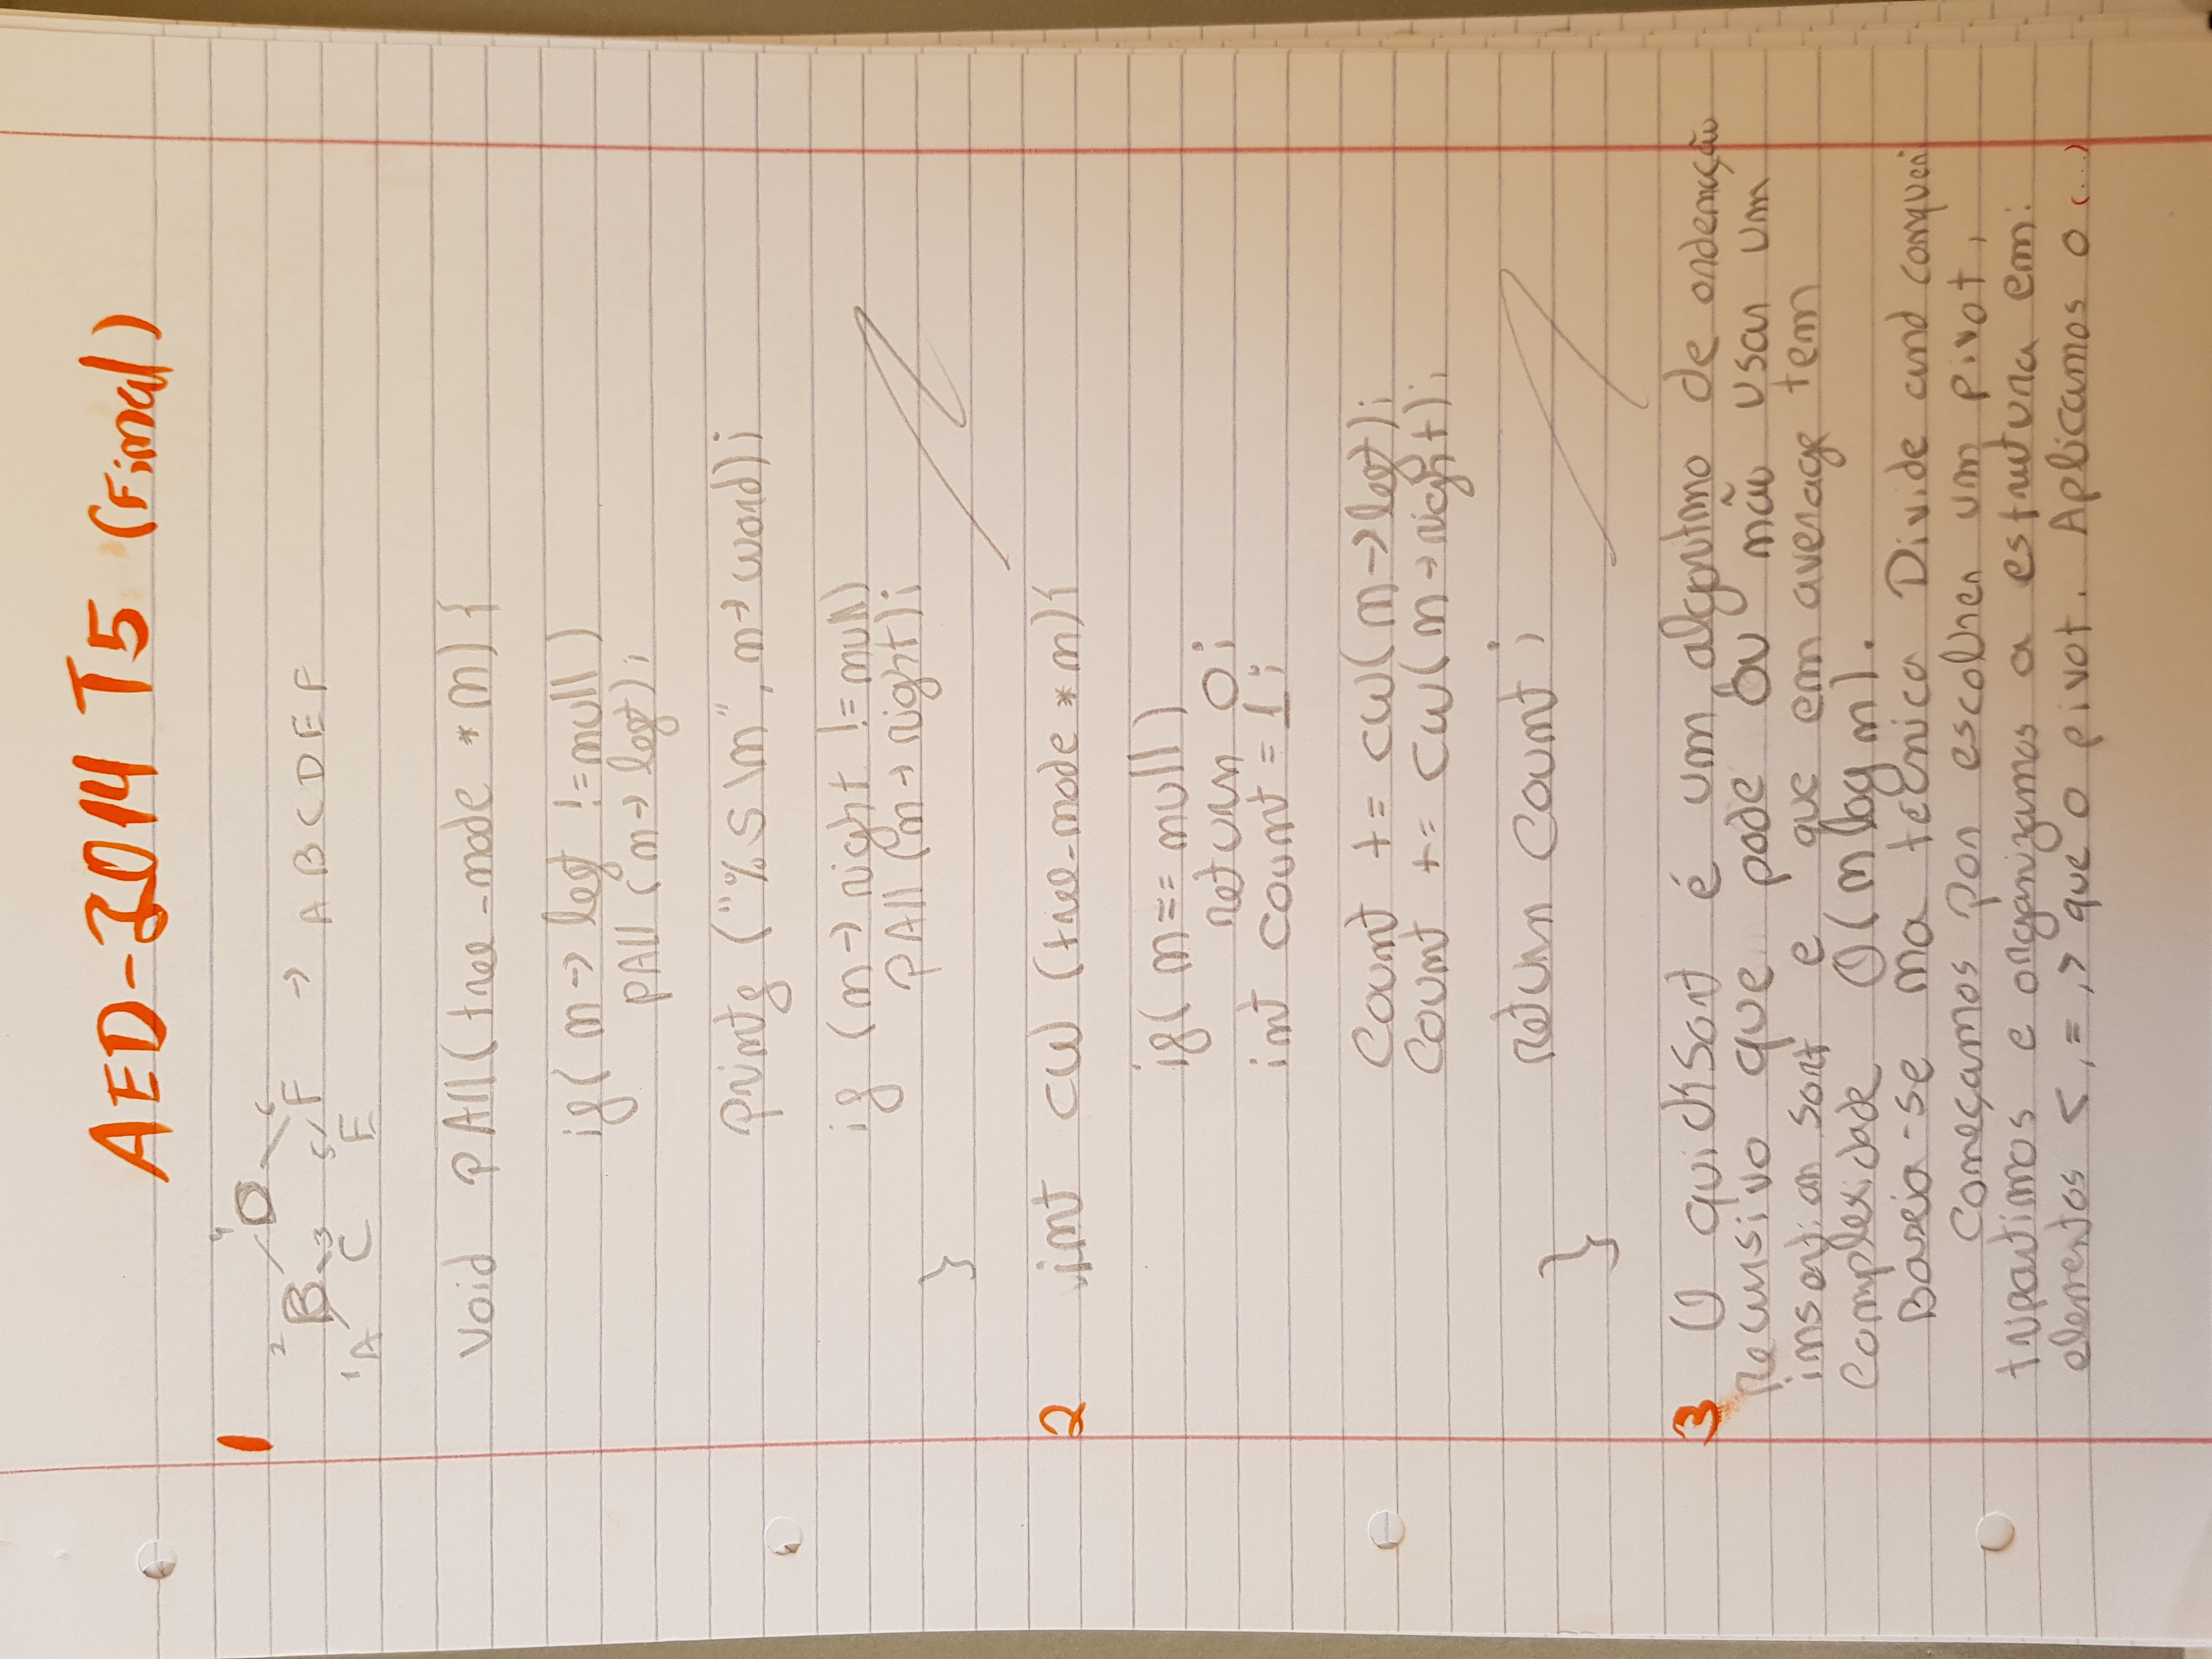 AED-2014 T5 (Final)
1
4
D
2 6
B F → A B C D E F
3 5
1 A C E
void pAll(tree_node *n){
if( n-> left !=null)
pAll (n-> left);
printf ("%s\n", n-> word);
if (n-> right !=null)
pAll (n-> right);
}
2 int cw (tree_node *n){
if( n== null)
return 0;
int count = 1;
Count += cw(n->left);
Count += cw(n->right);
return Count;
}
3 O quickSort é um algoritmo de ordenação
Recursivo que pode ou não usar um
insertion sort e que em average tem
complexidade O(n log n).
Baseia-se na técnica Divide and conquer
Começamos por escolher um pivot,
tripartimos e organizamos a estrutura em:
elementos <, =, > que o pivot. Aplicamos o (...)